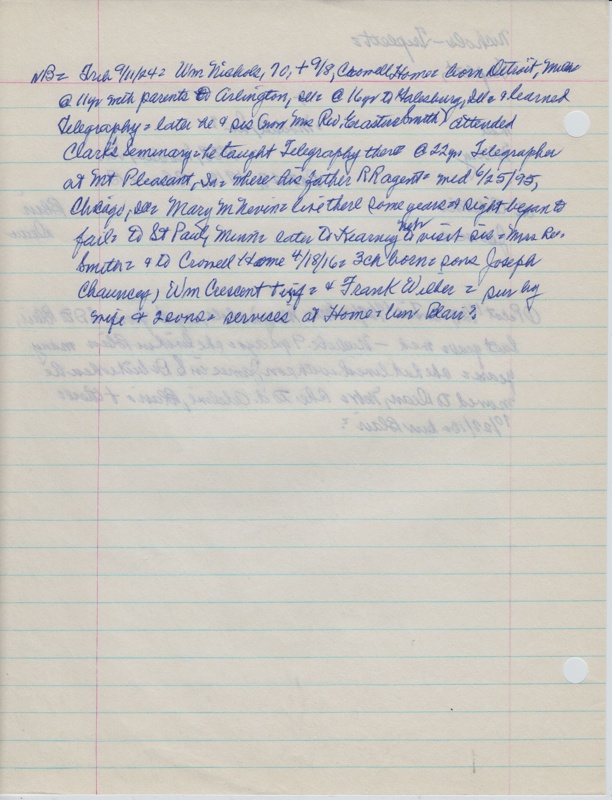 NB= Trib 9/11/24= Wm Nichols, 70, + 9/8, Crowell Home= born Detroit, Mich=
@ 11yr with parents to Arlington, Ill= @ 16yr to Galesburg, Ill= & learned
Telegraphy= later he & sis (now Mrs Rev. Erastus Smith) attended
Clark's Seminary= he taught Telegraphy there @ 22yr. Telegrapher
at Mt Pleasant, Ia= where his father RR agent= med 6/25/95,
Chicago, Ill= Mary M Nevin= live there some years & sight began to
fail= to St Paul, Minn= later to Kearney Neb visit sis= Mrs Rev.
Smith= & to Crowell Home 4/18/16= 3ch born= sons Joseph
Chauncey, Wm Crescent + inf= & Frank Wilber = sur by
wife & 2 sons= services at Home= bur Blair?